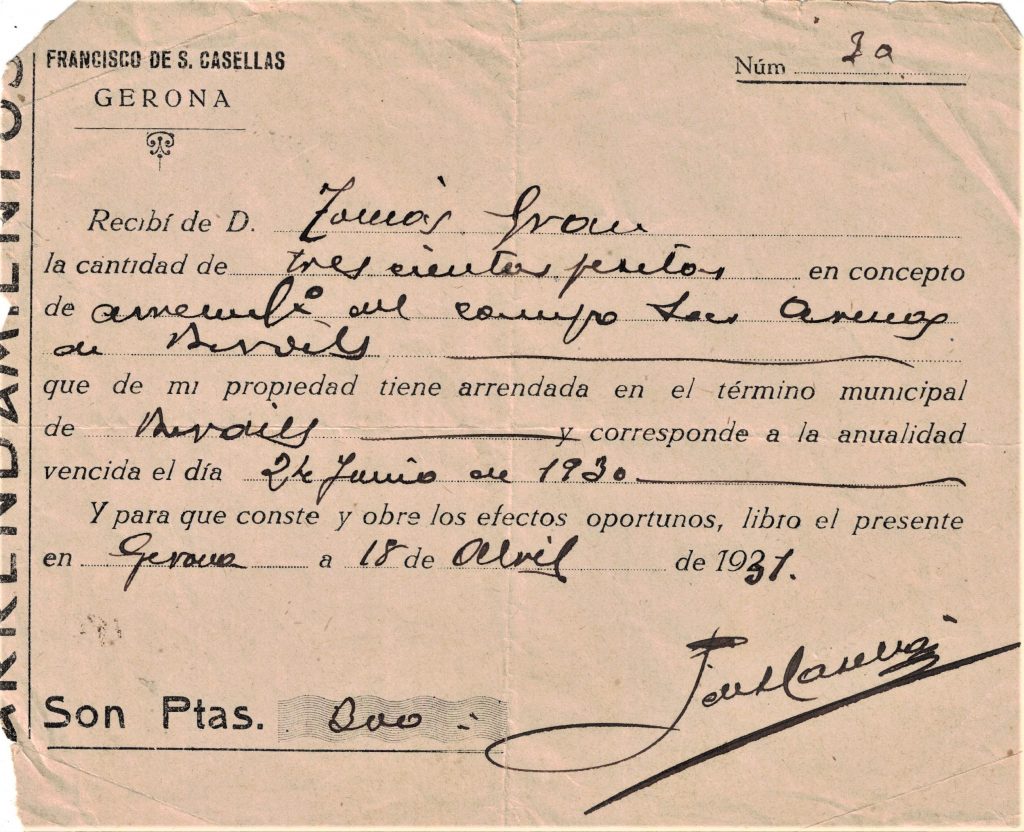 ARRENDAMIENTOS
FRANCISCO DE S. CASELLAS
GERONA
Núm
Recibí de D. Tomás Grau
la cantidad de tres cientas pesetas en concepto
de del campo Las Arenas
de Bordils
que de mi propiedad tiene arrendada en el término municipal
de Bordils y corresponde a la anualidad
vencida el día 24 Junio de 1930
Y para que conste y obre los efectos oportunos, libro el presente
en Gerona a 18 de Abril de 1931.
F de S Casellas
Son Ptas. 300 -